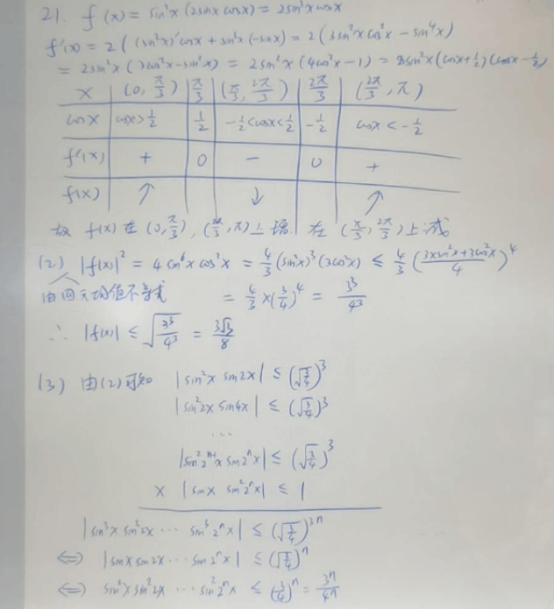 21. f(x) = sin²x (2sinx cosx) = 2sin³x cosx
f'(x) = 2( (sin³x)'cosx + sin³x (-sinx) = 2( 3sin²x cos²x - sin⁴x)
= 2sin²x ( 3cos²x - sin²x) = 2sin²x (4cos²x - 1) = 8sin²x (cosx + 1/2)(cosx - 1/2)
x (0, π/3) π/3 (π/3, 2π/3) 2π/3 (2π/3, π)
cosx cosx > 1/2 1/2 -1/2 < cosx < 1/2 -1/2 cosx < -1/2
f'(x) + 0 - 0 +
f(x) ↑ ↓ ↑
故 f(x) 在 (0, π/3), (2π/3, π) 上增 在 (π/3, 2π/3) 上减
(2) |f(x)|² = 4 sin⁶x cos²x = 4/3 (sin²x)³ (3cos²x) ≤ 4/3 ( (3×sin²x + 3cos²x)/4 )⁴
由四元均值不等式 = 4/3 × (3/4)⁴ = 3³/4³
∴ |f(x)| ≤ √(3³/4³) = 3√3/8
(3) 由(2)可知 |sin²x sin2x| ≤ (√(3/4))³
|sin²2x sin4x| ≤ (√(3/4))³
...
|sin²2ⁿ⁻¹x sin2ⁿx| ≤ (√(3/4))³
× |sinx sin²2ⁿx| ≤ 1
|sin³x sin³2x ··· sin³2ⁿx| ≤ (√(3/4))³ⁿ
⇔ |sinx sin2x ··· sin2ⁿx| ≤ (√(3/4))ⁿ
⇔ sin²x sin²2x ··· sin²2ⁿx ≤ (3/4)ⁿ = 3ⁿ/4ⁿ